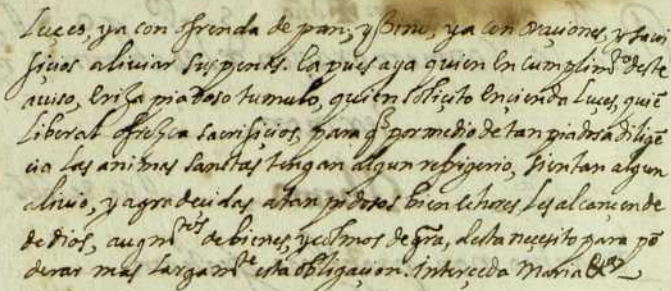 Luçes, ya con ofrenda de pan, y vino, ya con oraciones, y sacri
ficios aliviar sus penas. Ea pues aya quien en cumplimto deste
aviso, eriJa piadoso tumulo, quien soliçito encienda Luçes, quiē
Liberal ofrezca sacrificios, para q̃ por medio de tan piadosa diligē
cia las animas sanctas tengan algun refrigerio, sientan algun
alivio, y agradecidas a tan piadosos bien echores, les alcancen de
de dios, augmtos de bienes, y colmos de gr̃a, desta necesito para pō
derar mas largamte esta obligaçion. Interçeda Maria &a